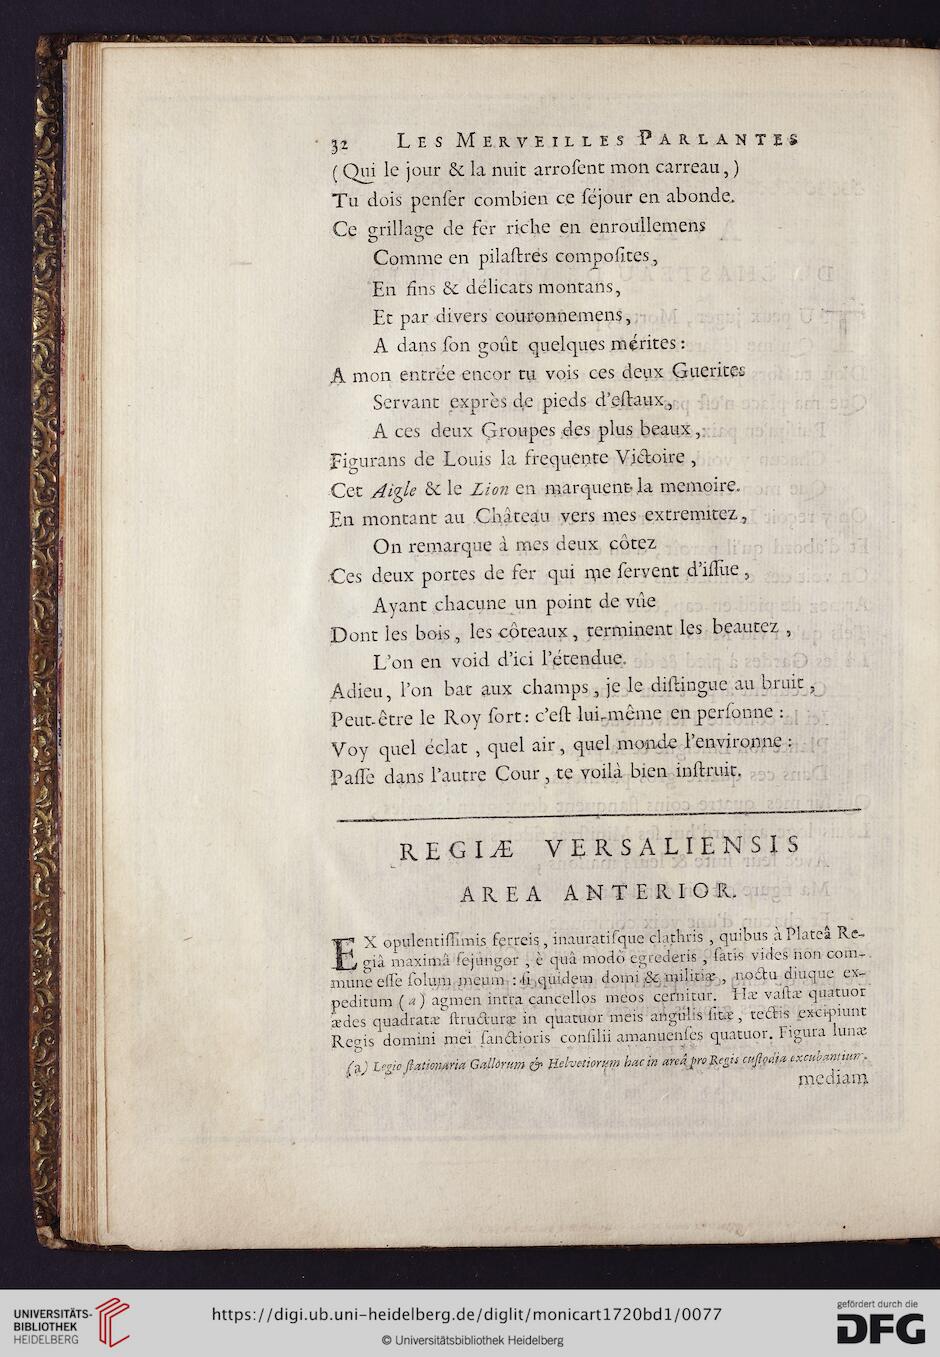 32 LES MERVEILLES PARLANTES
( Qui le jour & la nuit arrosent mon carreau, )
Tu dois penser combien ce séjour en abonde.
Ce grillage de fer riche en enroullemens
Comme en pilastres composites,
En fins & délicats montans,
Et par divers couronnemens,
A dans son goût quelques mérites :
A mon entrée encor tu vois ces deux Guerites
Servant exprès de pieds d'estaux,
A ces deux Groupes des plus beaux,
Figurans de Louis la frequente Victoire,
Cet Aigle & le Lion en marquent la memoire.
En montant au Château vers mes extremitez,
On remarque à mes deux côtez
Ces deux portes de fer qui me servent d'issue,
Ayant chacune un point de vûe
Dont les bois, les côteaux, terminent les beautez,
L'on en void d'ici l'étendue.
Adieu, l'on bat aux champs, je le distingue au bruit,
Peut-être le Roy sort : c'est lui-même en personne :
Voy quel éclat, quel air, quel monde l'environne :
Passe dans l'autre Cour, te voilà bien instruit.
REGIÆ VERSALIENSIS
AREA ANTERIOR.
EX opulentissimis ferreis, inauratisque clathris, quibus à Plateâ Re-
giâ maximâ sejungor, è quâ modò egrederis, satis vides non com-
mune esse solum meum : si quidem domi & militiæ, noctu diuque ex-
peditum (a) agmen intra cancellos meos cernitur. Hæ vastæ quatuor
ædes quadratæ structuræ in quatuor meis angulis sitæ, tectis excipiunt
Regis domini mei sanctioris consilii amanuenses quatuor. Figura lunæ
(a) Legio stationaria Gallorum & Helvetiorum hac in areâ pro Regis custodia excubantium.
mediam
UNIVERSITÄTS-
BIBLIOTHEK
HEIDELBERG
https://digi.ub.uni-heidelberg.de/diglit/monicart1720bd1/0077
© Universitätsbibliothek Heidelberg
gefördert durch die
DFG